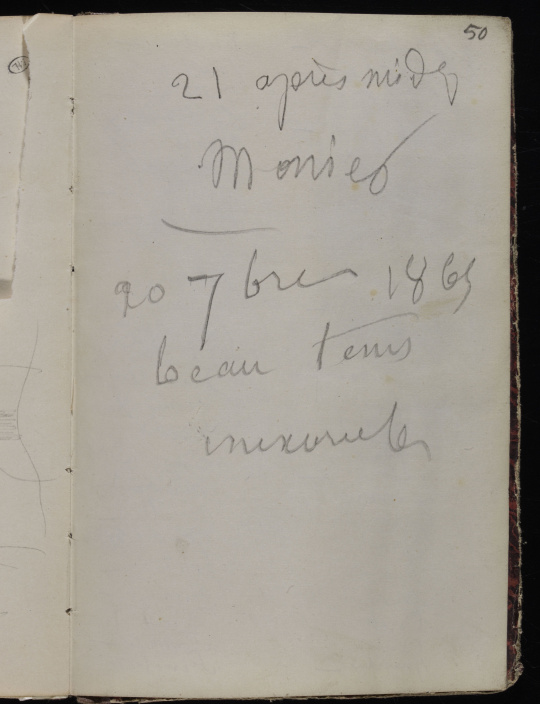 50
21 après midy
Monsieo
20 7bre 1865
beau tems